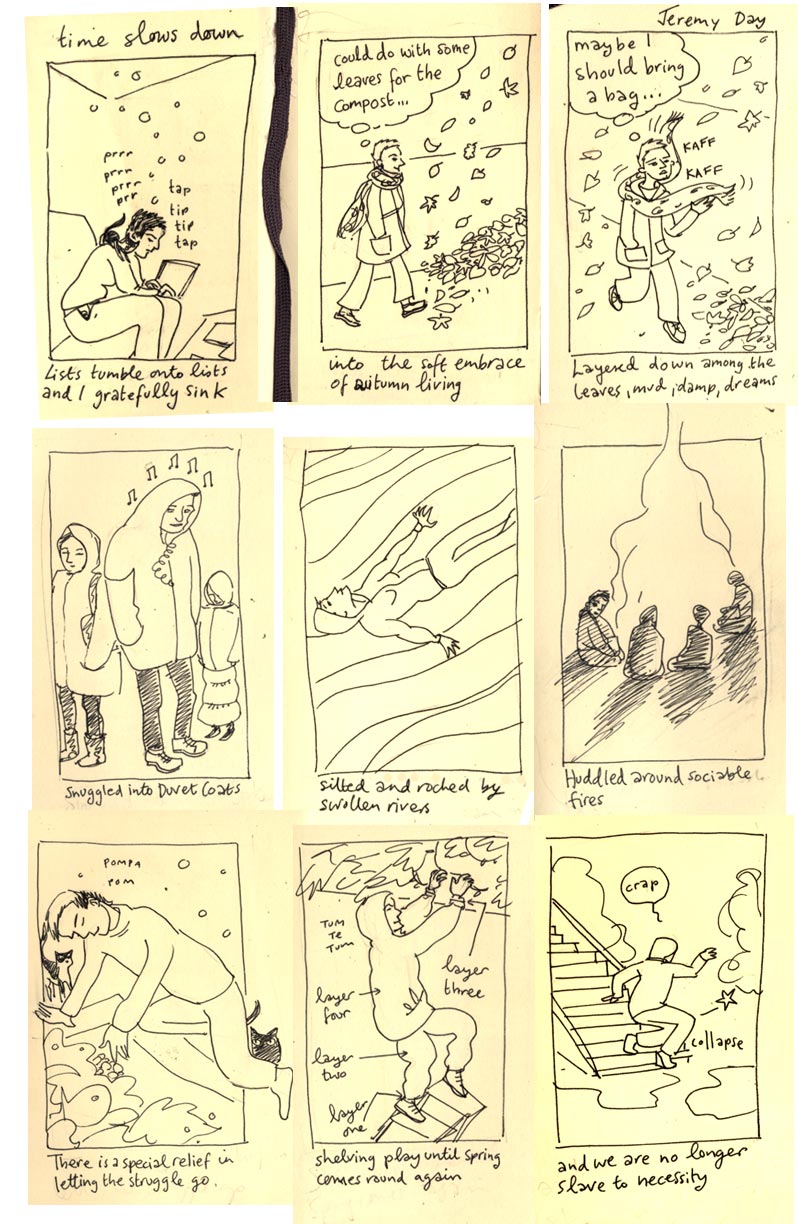 time slows down
Jeremy Day
prrr
prrn
prrr
prr
tap
tip
tip
tap
Lists tumble onto lists
and I gratefully sink
could do with some
leaves for the
compost...
into the soft embrace
of autumn living
maybe I
should bring
a bag...
KAFF
KAFF
Layered down among the
leaves, mud, damp, dreams
Snuggled into Duvet Coats
silted and rocked by
swollen rivers
Huddled around sociable
fires
POMPA
POM
There is a special relief in
letting the struggle go.
TUM
TE
TUM
layer
three
layer
four
layer
two
layer
one
shelving play until spring
comes round again
crap
collapse
and we are no longer
slave to necessity